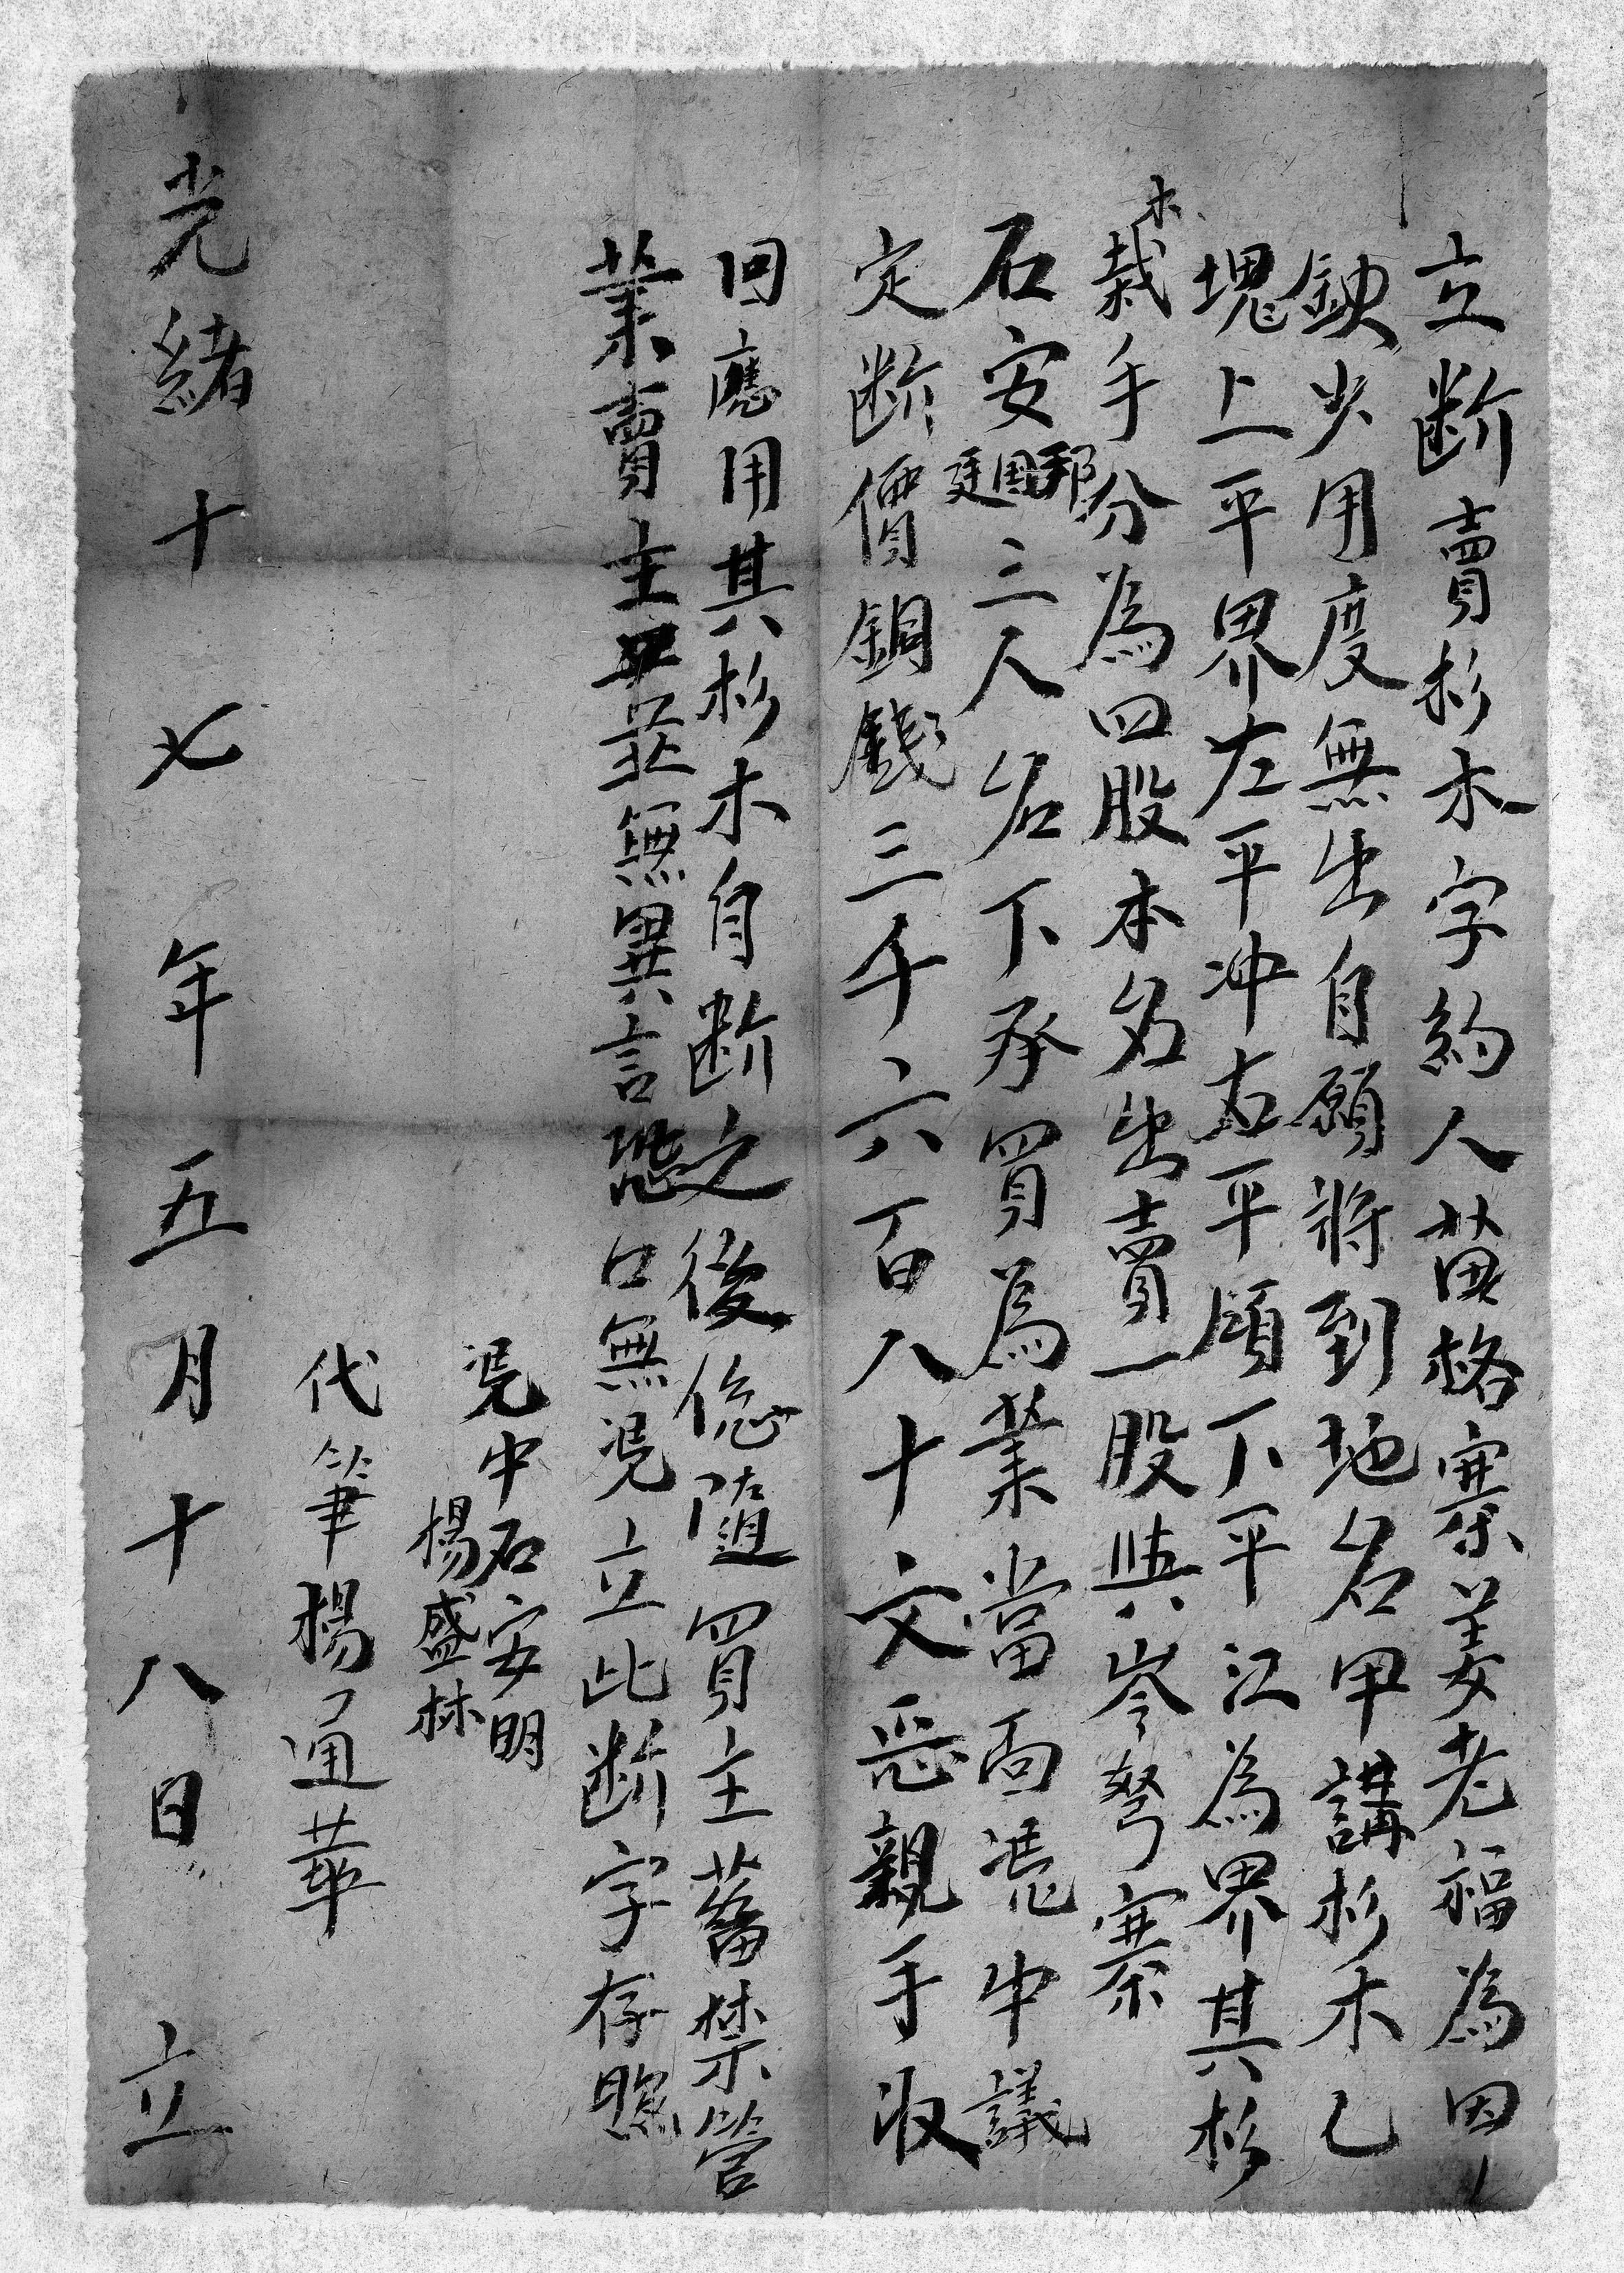 立断賣杉木字約人苗格寨姜老福為因
缺少用度無出自願將到地名甲講杉木乙
塊上平界左平冲右平嶺下平江為界其杉
木栽手分為四股本名出賣一股與岑孥寨
石安邦國廷三人名下承買為業當面凴中議
定断價銅錢三千六百八十文忝親手收
回應用其杉木自断之後凴隨買主蓄禁管
業賣主並無異言恐口無凴立此断字存照
凴中石安明
楊盛林
代筆楊通華
光緒十七年五月十八日立